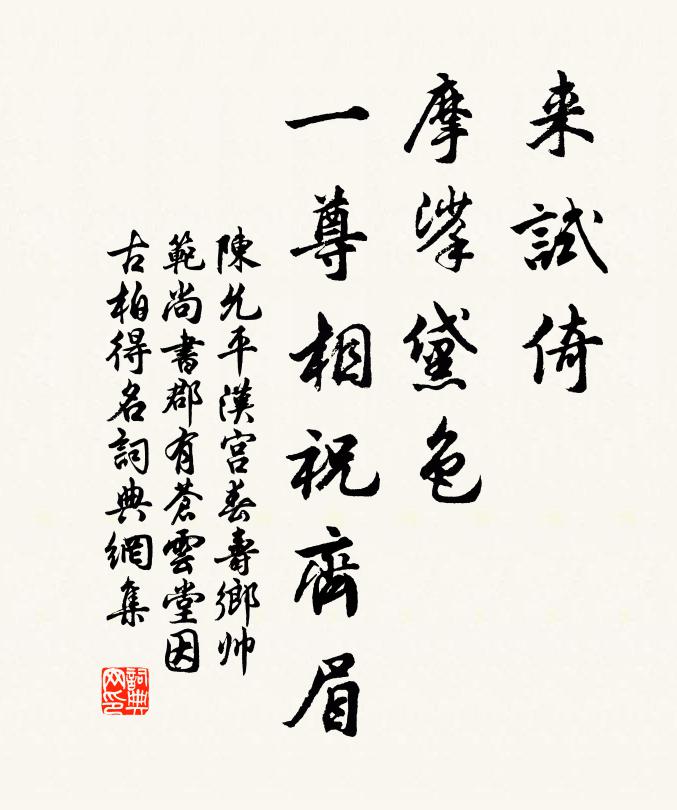 来試倚
摩挲黛色
一尊相祝齊眉
陳允平漢宮春壽鄉帅
範尚書郡有蒼雲堂因
古柏得名詞典網集
詞典
网印